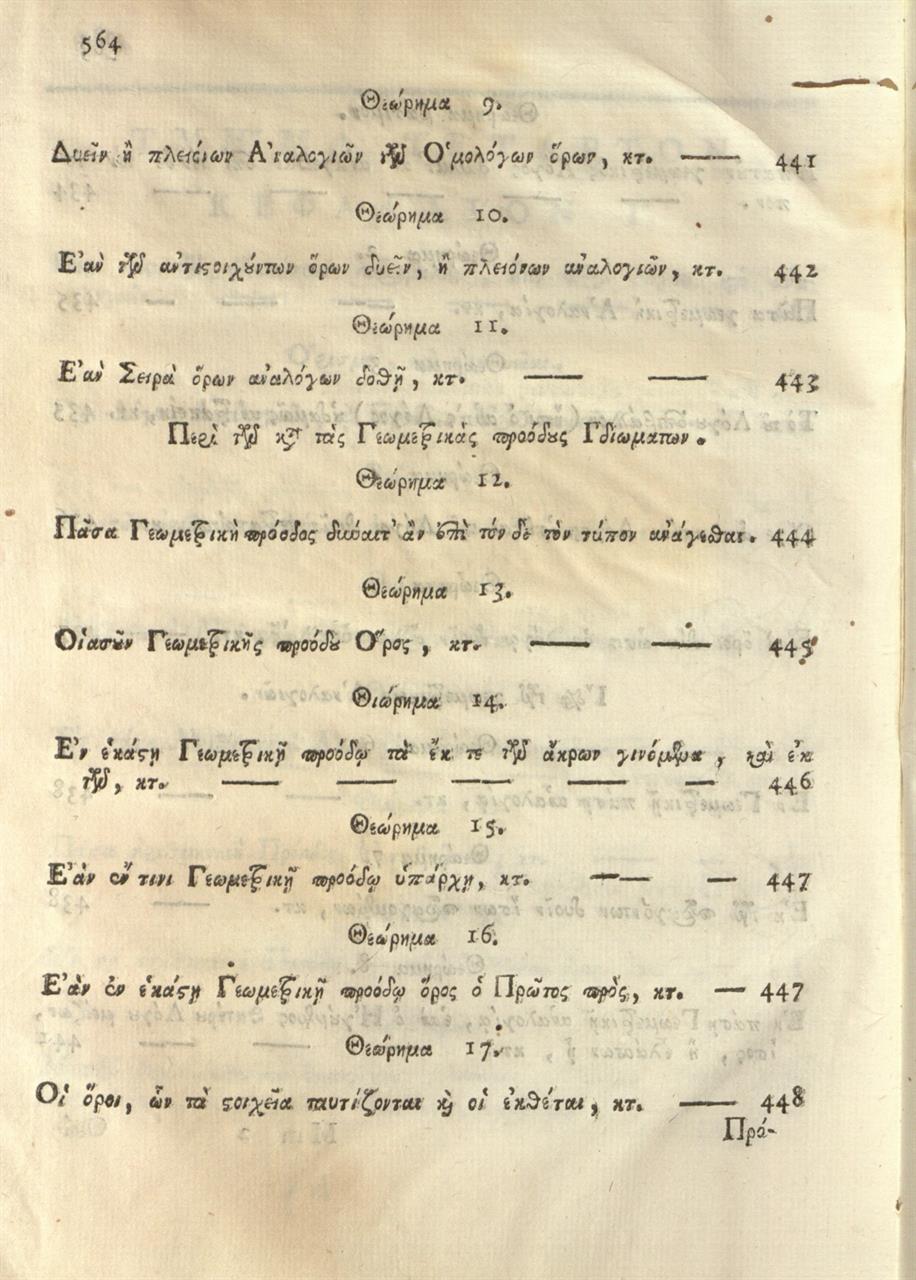 564
Θεώρημα 9.
Δυεῖν ἢ πλειόνων Ἀναλογιῶν τῶν Ὁμολόγων ὅρων, κτ. — 441
Θεώρημα 10.
Ἐὰν τῶν ἀντιστοιχούντων ὅρων δυεῖν, ἢ πλειόνων ἀναλογιῶν, κτ. 442
Θεώρημα 11.
Ἐὰν Σειρὰ ὅρων ἀναλόγων δοθῇ, κτ. — — 443
Περὶ τῶν κατὰ τὰς Γεωμετρικὰς προόδους Ἰδιωμάτων.
Θεώρημα 12.
Πᾶσα Γεωμετρικὴ πρόοδος δύναιτ' ἂν ἐπὶ τόν δε τὸν τύπον ἀνάγεσθαι. 444
Θεώρημα 13.
Οἱασοῦν Γεωμετρικῆς προόδου Ὅρος, κτ. — — 445
Θιώρημα 14.
Ἐν ἑκάστῃ Γεωμετρικῇ προόδῳ τὰ ἔκ τε τῶν ἄκρων γινόμενα, καὶ ἐκ
τῶν, κτ. — — — — — 446
Θεώρημα 15.
Ἐάν ἔν τινι Γεωμετρικῇ προόδῳ ὑπάρχῃ, κτ. — — 447
Θεώρημα 16.
Ἐὰν ἐν ἑκάστῃ Γεωμετρικῇ προόδῳ ὅρος ὁ Πρῶτος πρὸς, κτ. — 447
Θεώρημα 17.
Οἱ ὅροι, ὧν τὰ στοιχεῖα ταυτίζονται καὶ οἱ ἐκθέται, κτ. — 448
Πρό-